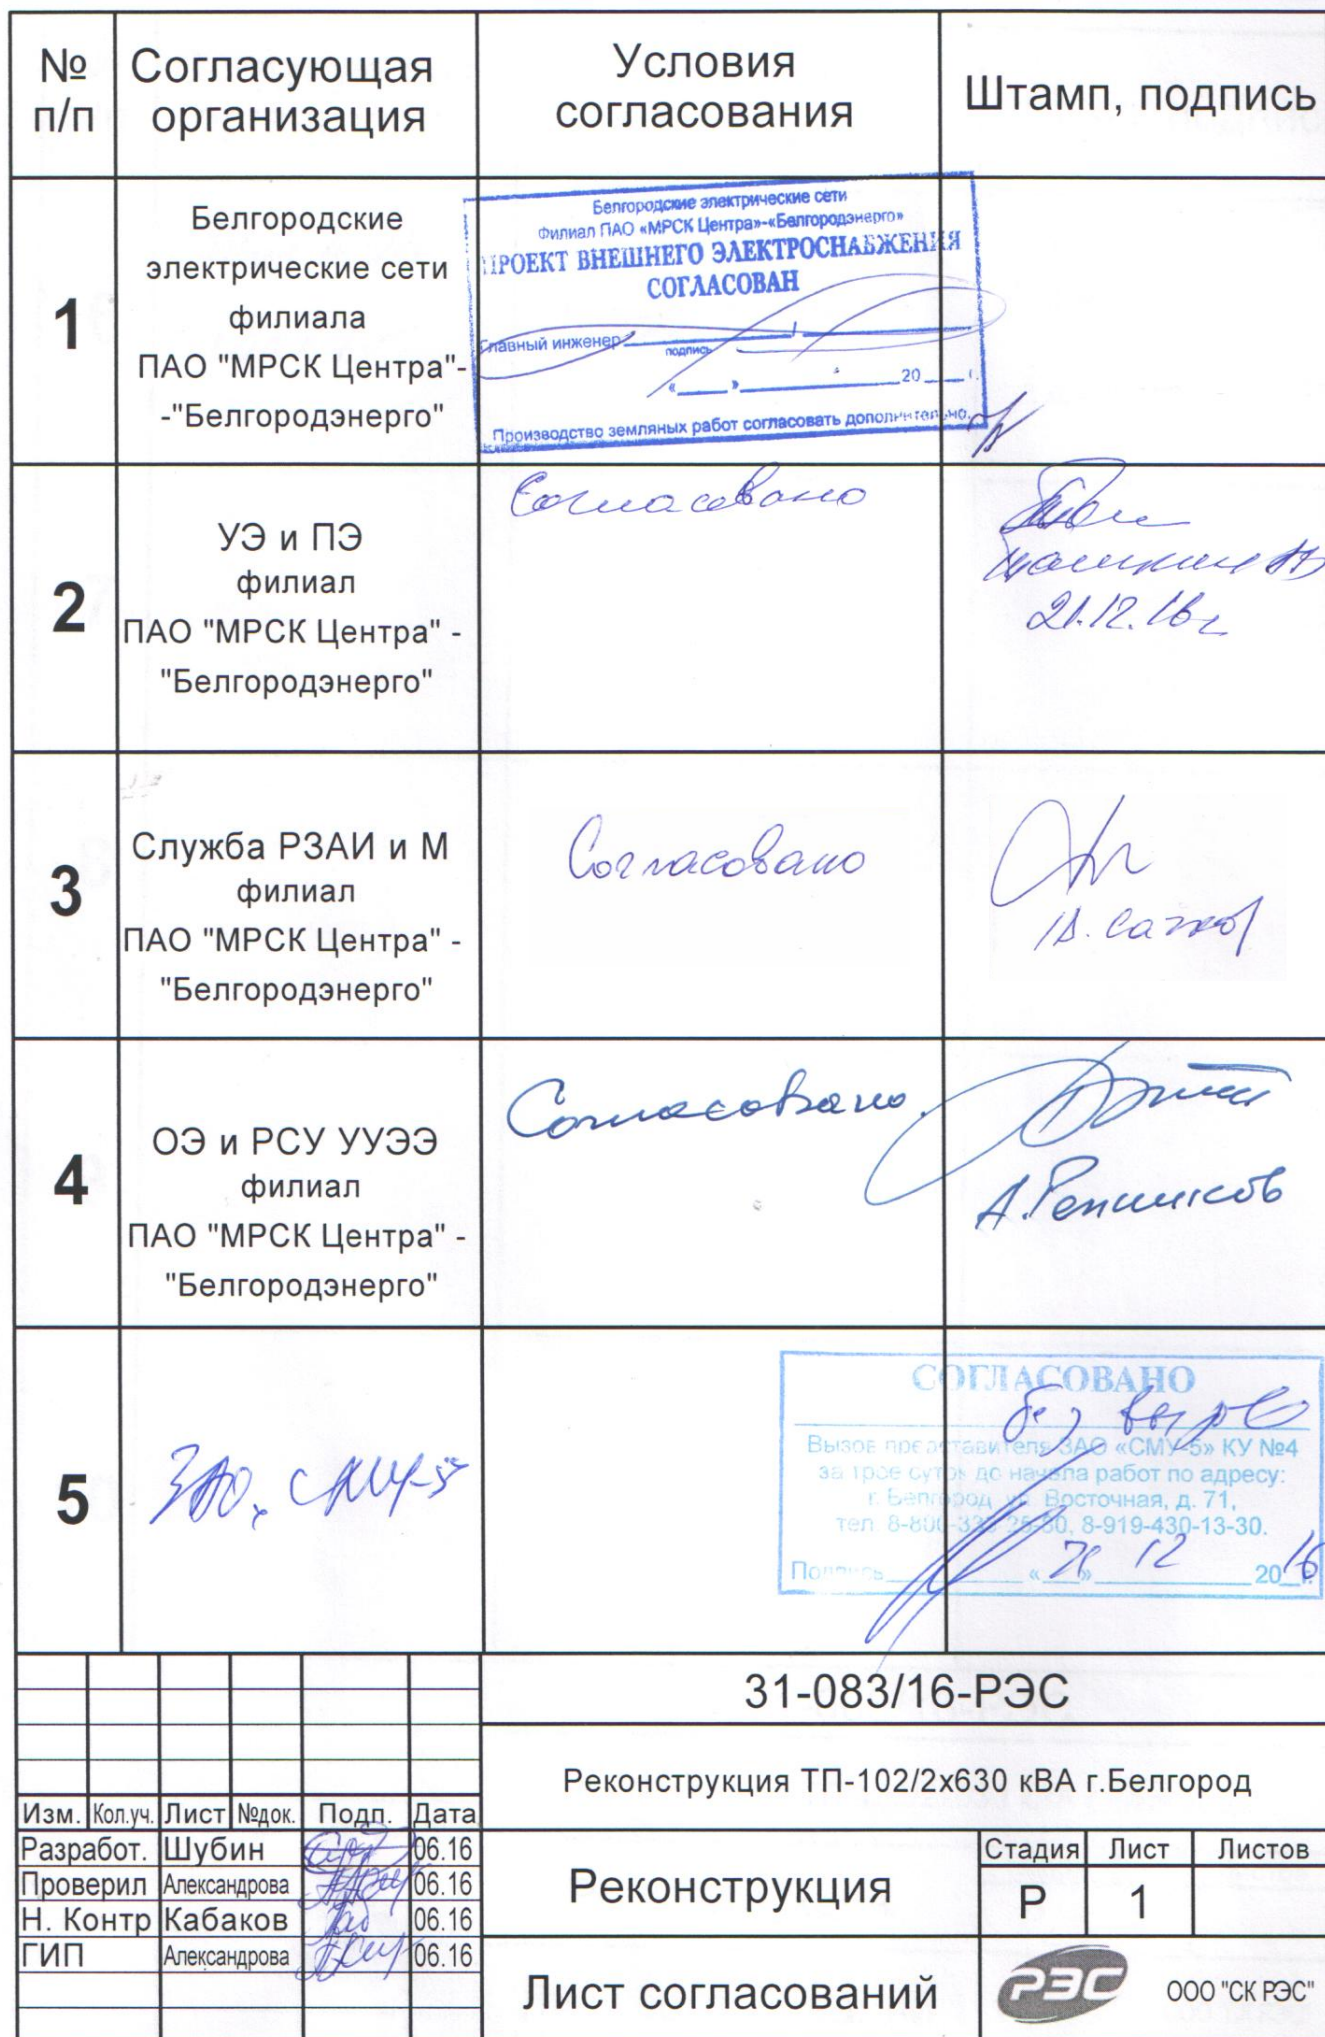 № п/п
Согласующая организация
Условия согласования
Штамп, подпись
1
Белгородские
электрические сети
филиала
ПАО "МРСК Центра"-
-"Белгородэнерго"
Белгородские электрические сети
Филиал ПАО «МРСК Центра»-«Белгородэнерго»
ПРОЕКТ ВНЕШНЕГО ЭЛЕКТРОСНАБЖЕНИЯ
СОГЛАСОВАН
Главный инженер /
подпись
« » 20 г.
Производство земляных работ согласовать дополнительно.
2
УЭ и ПЭ
филиал
ПАО "МРСК Центра" -
"Белгородэнерго"
Согласовано
21.12.16г
3
Служба РЗАИ и М
филиал
ПАО "МРСК Центра" -
"Белгородэнерго"
Согласовано
4
ОЭ и РСУ УУЭЭ
филиал
ПАО "МРСК Центра" -
"Белгородэнерго"
Согласовано
А.Репников
5
ЗАО "СМУ-5"
СОГЛАСОВАНО
без
Вызов представителя ЗАО «СМУ-5» КУ №4
за трое суток до начала работ по адресу:
г. Белгород, ул. Восточная, д. 71,
тел. 8-800- 8-919-430-13-30.
Подпись « » 12 2016 г.
31-083/16-РЭС
Реконструкция ТП-102/2х630 кВА г.Белгород
Изм. Кол.уч. Лист №док. Подп. Дата
Разработ. Шубин 06.16
Проверил Александрова 06.16
Н. Контр Кабаков 06.16
ГИП Александрова 06.16
Реконструкция
Стадия Лист Листов
Р 1
Лист согласований
РЭС
ООО "СК РЭС"